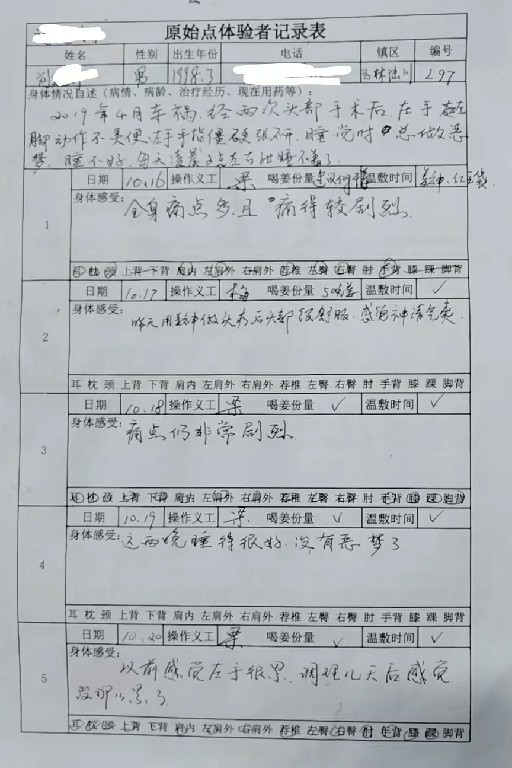 原始点体验者记录表
姓名 性别 出生年份 电话 镇区 编号
刘 男 1998.3 297
身体情况自述(病情、病龄、治疗经历、现在用药等):
2019年4月车祸、经两次头部手术后、在手左
脚动作不灵便、左手手指僵硬张不开、睡觉时总做恶
梦、睡不好、每天凌晨2点左右就睡不着了.
日期 10.16 操作义工 梁 喝姜份量 温敷时间
1
身体感受:
全身痛点多、且痛得较剧烈.
耳 枕 颈 上背 下背 肩内 左肩外 右肩外 荐椎 左臀 右臀 肘 手背 膝 踝 脚背
日期 10.17 操作义工 喝姜份量 温敷时间 ✓
2
身体感受:
昨天用姜做头部后头部很舒服、感觉神清气爽.
耳 枕 颈 上背 下背 肩内 左肩外 右肩外 荐椎 左臀 右臀 肘 手背 膝 踝 脚背
日期 10.18 操作义工 梁 喝姜份量 ✓ 温敷时间 ✓
3
身体感受:
痛点仍非常剧烈.
耳 枕 颈 上背 下背 肩内 左肩外 右肩外 荐椎 左臀 右臀 肘 手背 膝 踝 脚背
日期 10.19 操作义工 梁 喝姜份量 ✓ 温敷时间 ✓
4
身体感受:
这两晚睡得很好.没有恶梦了
耳 枕 颈 上背 下背 肩内 左肩外 右肩外 荐椎 左臀 右臀 肘 手背 膝 踝 脚背
日期 10.20 操作义工 梁 喝姜份量 ✓ 温敷时间 ✓
5
身体感受:
以前感觉左手很累、调理几天后感觉
没那么累了
耳 枕 颈 上背 下背 肩内 左肩外 右肩外 荐椎 左臀 右臀 肘 手背 膝 踝 脚背